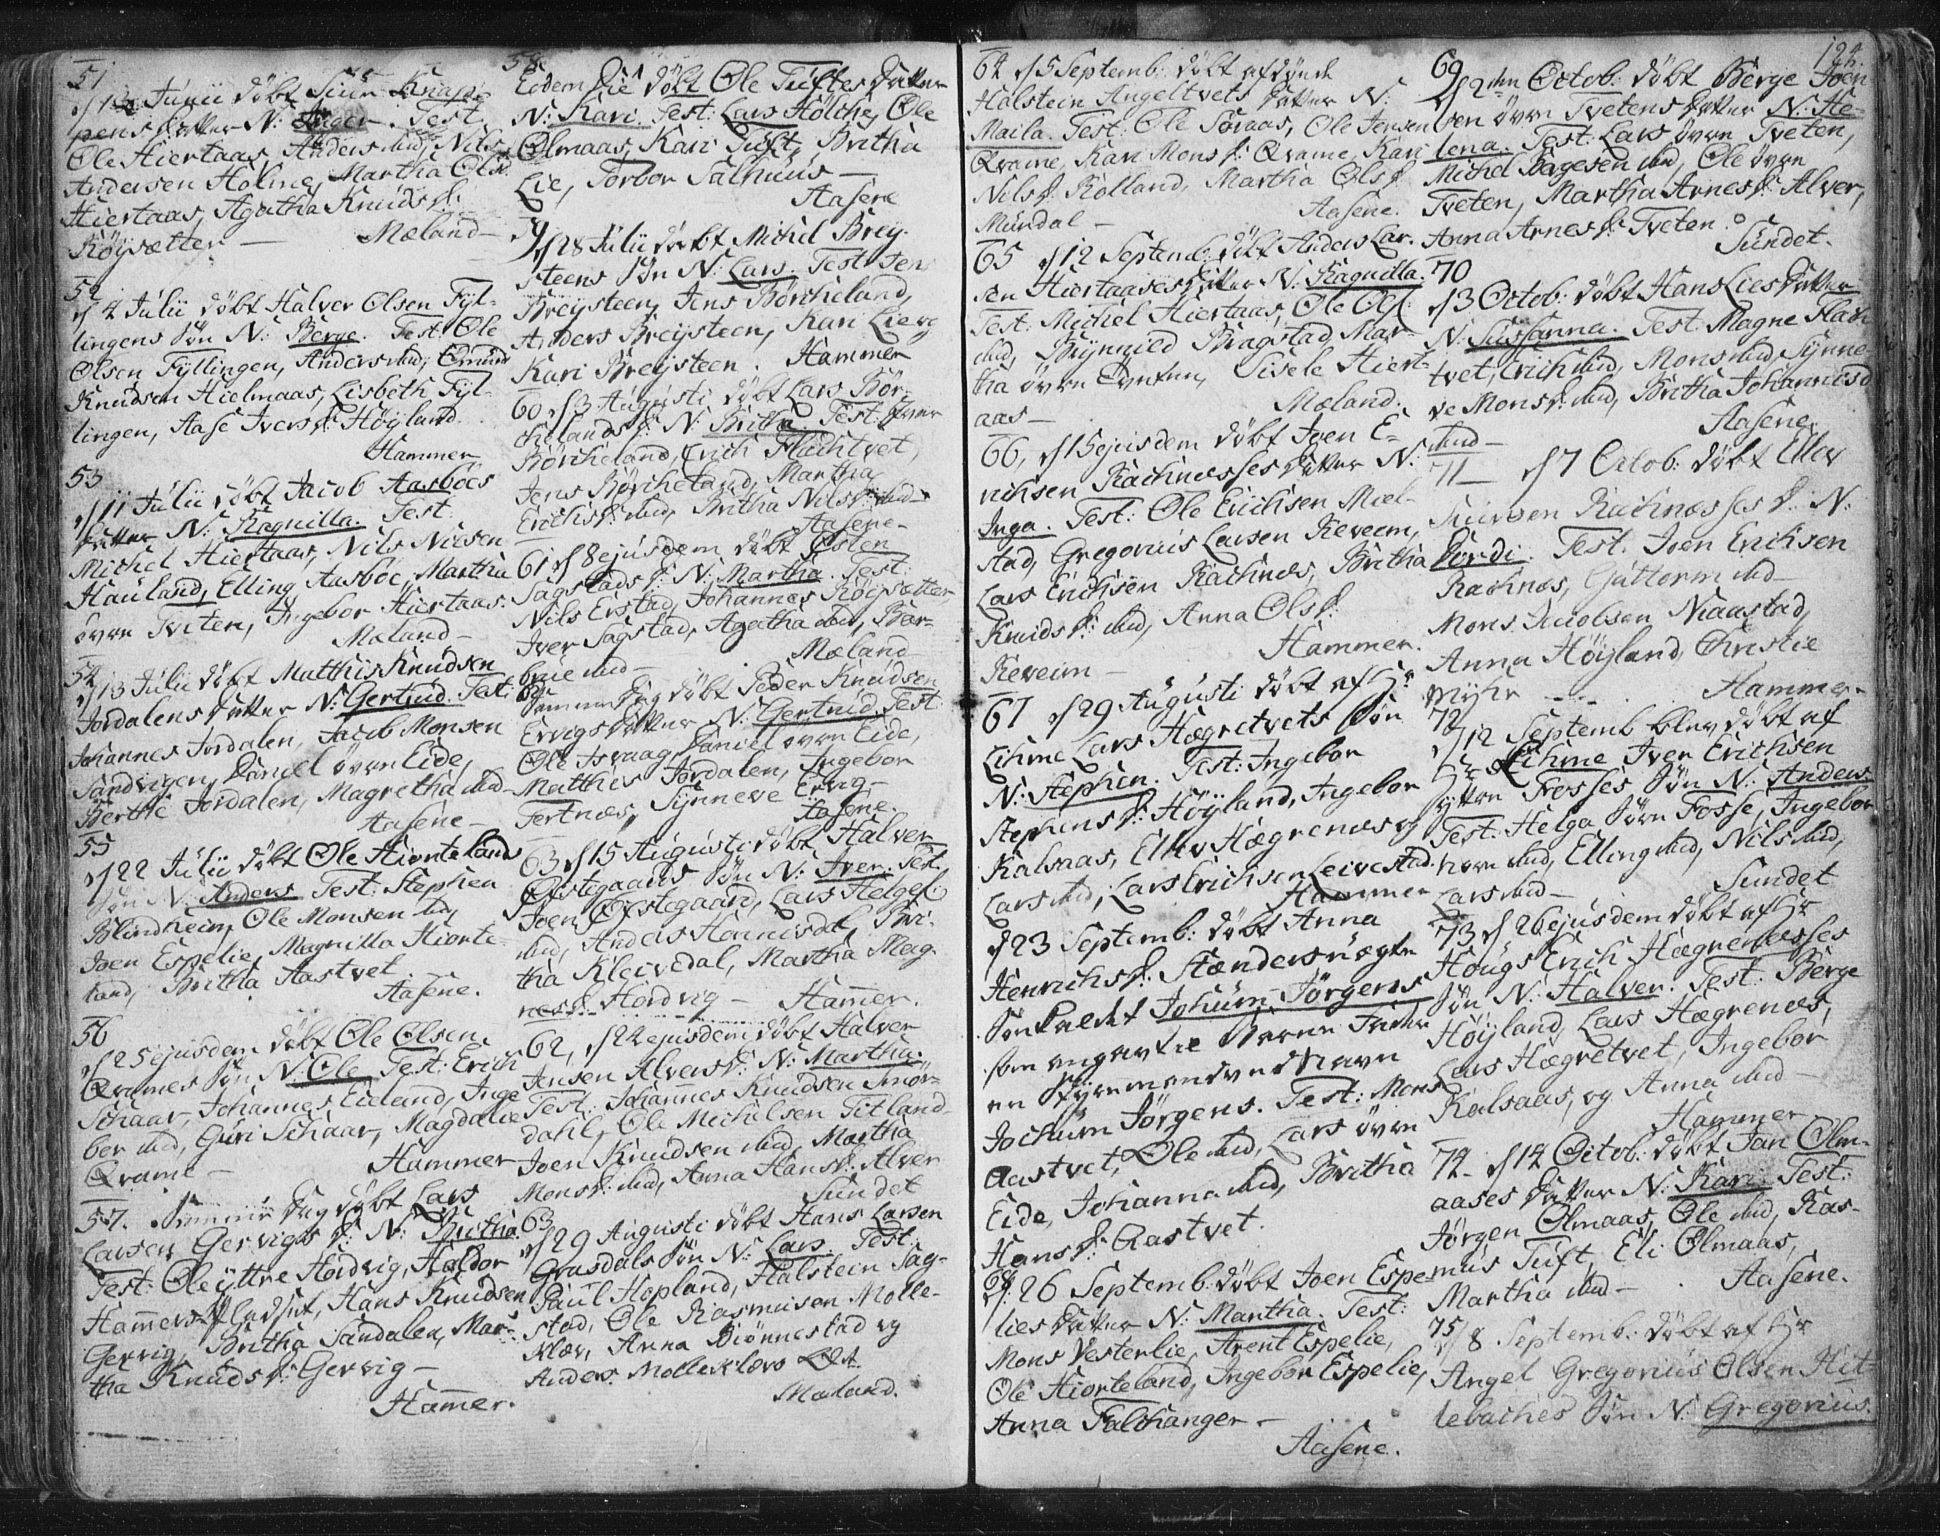 51
Junii döbt Siur Knap-
pens datter N: Test
Ole Hiertaas, Anders ibid, Nils
Andersen Holme, Martha Ols
Hiertaas, Agatha Knuds d:
Röysætter — Mæland —
52
d 4 Julii döbt Halver Olsen Fyl-
lingens Sön N: Berge. Test: Ole
Olsen Fyllingen, Anders ibid, Omund
Knudsen Hielmaas, Lisbeth Fyl-
lingen, Aase Ivers d: Höyland.
Hammer
53
d 11 Julii döbt Jacob Aasböes
datter N: Ragnilla. Test:
Michel Hiertaas, Nils Nilsen
Hauland, Elling Aasböe, Martha
övre Tveten, Ingebor Hiertaas.
Mæland —
54
d 13 Julii döbt Matthis Knudsen
Jordalens datter N: Gertrud. Test:
Johannes Jordalen, Jacob Monsen
Sandvigen, Daniel övre Eide,
Berthe Jordalen, Magretha ibid
Aasene —
55
d 22 Julii döbt Ole Hiortelands
Sön N: Anders Test: Stephen
Blindheim, Ole Monsen ibid,
Joen Espelie, Magnilla Hiorte-
land, Britha Aastvet.
Aasene.
56
d 25 ejusdem döbt Ole Olsen
Qvames Sön N: Ole. Test: Erich
Schaar, Johannes Eideland, Inge-
ber ibid, Guri Schaar, Magdalie
Qvame — Hammer
57. Samme Dag döbt Lars
Larsen Gervigs d: N: Britha.
Test: Ole yttre Hordvig, Haldor
Hammers Pladset, Hans Knudsen
Gervig, Britha Sandalen, Mar-
tha Knuds d: Gervig —
Hammer.
58
Eodem Die döbt Ole Tuftes datter
N: Kari. Test: Lars Hölche, Ole
Olmaas, Kari Tuft, Britha
Lie, Torbor Salhuus —
Aasene
59
d 28 Julii döbt Michel Brey-
steens Sön N: Lars. Test: Jens
Breysteen, Jens Börcheland,
Anders Breysteen, Kari Lie og
Kari Breysteen. Hammer
60 d 3 Augusti döbt Lars Bör-
chelands d: N: Britha. Test: Iver
Börcheland, Erich Flachtvet,
Jens Börcheland, Martha
Erichs d: ibid, Britha Nils d: ibid —
Aasene —
61 d 8 ejusdem döbt Östen
Sagstads d: N: Martha. Test:
Nils Erstad, Johannes Röysætter,
Iver Sagstad, Agatha ibid, Bar-
broe ibid — Mæland
62
Samme Dag döbt Peder Knudsen
Ervigs datter N: Gertrud. Test:
Ole Isvaag, Daniel övre Eide,
Matthis Jordalen, Ingebor
Tertnæs, Synneve Ervig —
Aasene.
63 d 15 Augusti döbt Halver
Östegaards Sön N: Iver. Test:
Joen Östegaard, Lars Helges:
ibid, Anders Hannisdal, Bri-
tha Kleivedal, Martha Mag-
nes d: Hordvig — Hammer.
62, d 22 ejusdem döbt Halver
Jensen Alvers d: N: Martha.
Test: Johannes Knudsen Smör-
dahl, Ole Michelsen Titland
Joen Knudsen ibid, Martha
Mons d: ibid, Anna Hans d: Alver
Sundet
63
d 29 Augusti döbt Hans Larsen
Grasdals Sön N: Lars. Test:
Paul Hopland, Halstein Sag-
stad, Ole Rasmusen Molle-
klæv, Anna Biönnestad og
Anders Molleklævs
Mæland.
124.
64 d 5 Septemb: döbt afdöde
Halstein Angeltvets datter N:
Maila. Test: Ole Toraas, Ole Jensen
Qvame, Kari Mons d: Qvame, Kari
Nils d: Rölland, Martha Ols d:
Mundal — Aasene.
65 d 12 Septemb: döbt Anders Lar-
sen Hiertaases datter N: Ragnilla.
Test: Michel Hiertaas, Ole Ols:
ibid, Brynnild Bragstad, Mar-
tha övre Tveten, Sisele Hiert-
aas — Mæland.
66, d 15 ejusdem döbt Joen E-
richsen Rachnæsses datter N:
Inga. Test: Ole Erichsen Mæl-
stad, Gregorius Larsen Reveim,
Lars Erichsen Rachnæs, Britha
Knuds d: ibid, Anna Ols d:
Reveim — Hammer.
67 d 29 Augusti döbt af Hr
Lihme Lars Hægretvets Sön
N: Stephen. Test: Ingebor
Stephens d: Höyland, Ingebor
Kalsaas, Ellev Hægrenæs og
Lars ibid, Lars Erichsen Leivestad.
Hammer
d 23 Septemb: döbt Anna
Henrichs d: Hændersnægte
Sön kaldet Jochum Jörgens
som angav til Barne Fader
en Styrmand ved Navn
Jochum Jörgens. Test: Mons
Aastvet, Ole ibid, Lars övre
Eide, Johanna ibid, Britha
Hans d: Aastvet.
68
d. 26 Septemb: döbt Joen Espe-
lies datter N: Martha. Test:
Mons Vesterlie, Arent Espelie,
Ole Hiorteland, Ingebor Espelie,
Anna Falchanger —
Aasene.
69
d 2den Octob: döbt Berge Joen-
sen övre Tvetens datter N: He-
lena. Test: Lars övre Tveten,
Michel Bergesen ibid, Ole övre
Tveten, Martha Arnes d: Alver,
Anna Arnes d: Tveten.
Sundet.
70
d 3 Octob: döbt Hans Lies datter
N: Susanna. Test: Magne Flach-
tvet, Erich ibid, Mons ibid, Synne-
ve Mons d: ibid, Britha Johannis d
ibid — Aasene.
71 — d 7 Octob: döbt Ellev
Iversen Rachnæsses d: N:
Gordi. Test: Joen Erichsen
Rachnæs, Guttorm ibid —
Mons Jacobsen Niaastad,
Anna Höyland, Christie
Myhr — Hammer —
72
d 12 Septemb blev döbt af
Hr Lihme Iver Erichsen
yttre Fosses Sön N: Anders
Test: Helga Sörn Fosse, Ingebor
horn ibid, Elling ibid, Nils ibid,
Lars ibid — Sundet
73 d 26 ejusdem döbt af Hr
Hougs Erich Hægrenæsses
Sön N: Halver. Test: Berge
Höyland, Lars Hægrenæs,
Lars Hægretvet, Ingebor
Kalsaas, og Anna ibid —
Hammer
74 d 14 Octob: döbt Jan Olm-
aases datter N: Kari. Test:
Jörgen Olmaas, Ole ibid, Ras-
mus Tuft, Eli Olmaas,
Martha ibid — Aasene.
75
d 8. Septemb: döbt af Hr
Angel Gregorius Olsen Hit-
lebaches Sön N: Gregorius.